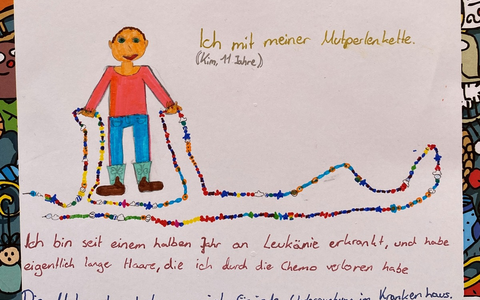 Ich mit meiner Mutperlenkette.
(Kim, 11 Jahre)
Ich bin seit einem halben Jahr an Leukänie erkrankt, und habe
eigentlich lange Haare, die ich durch die Chemo verloren habe
im Krankenhaus.